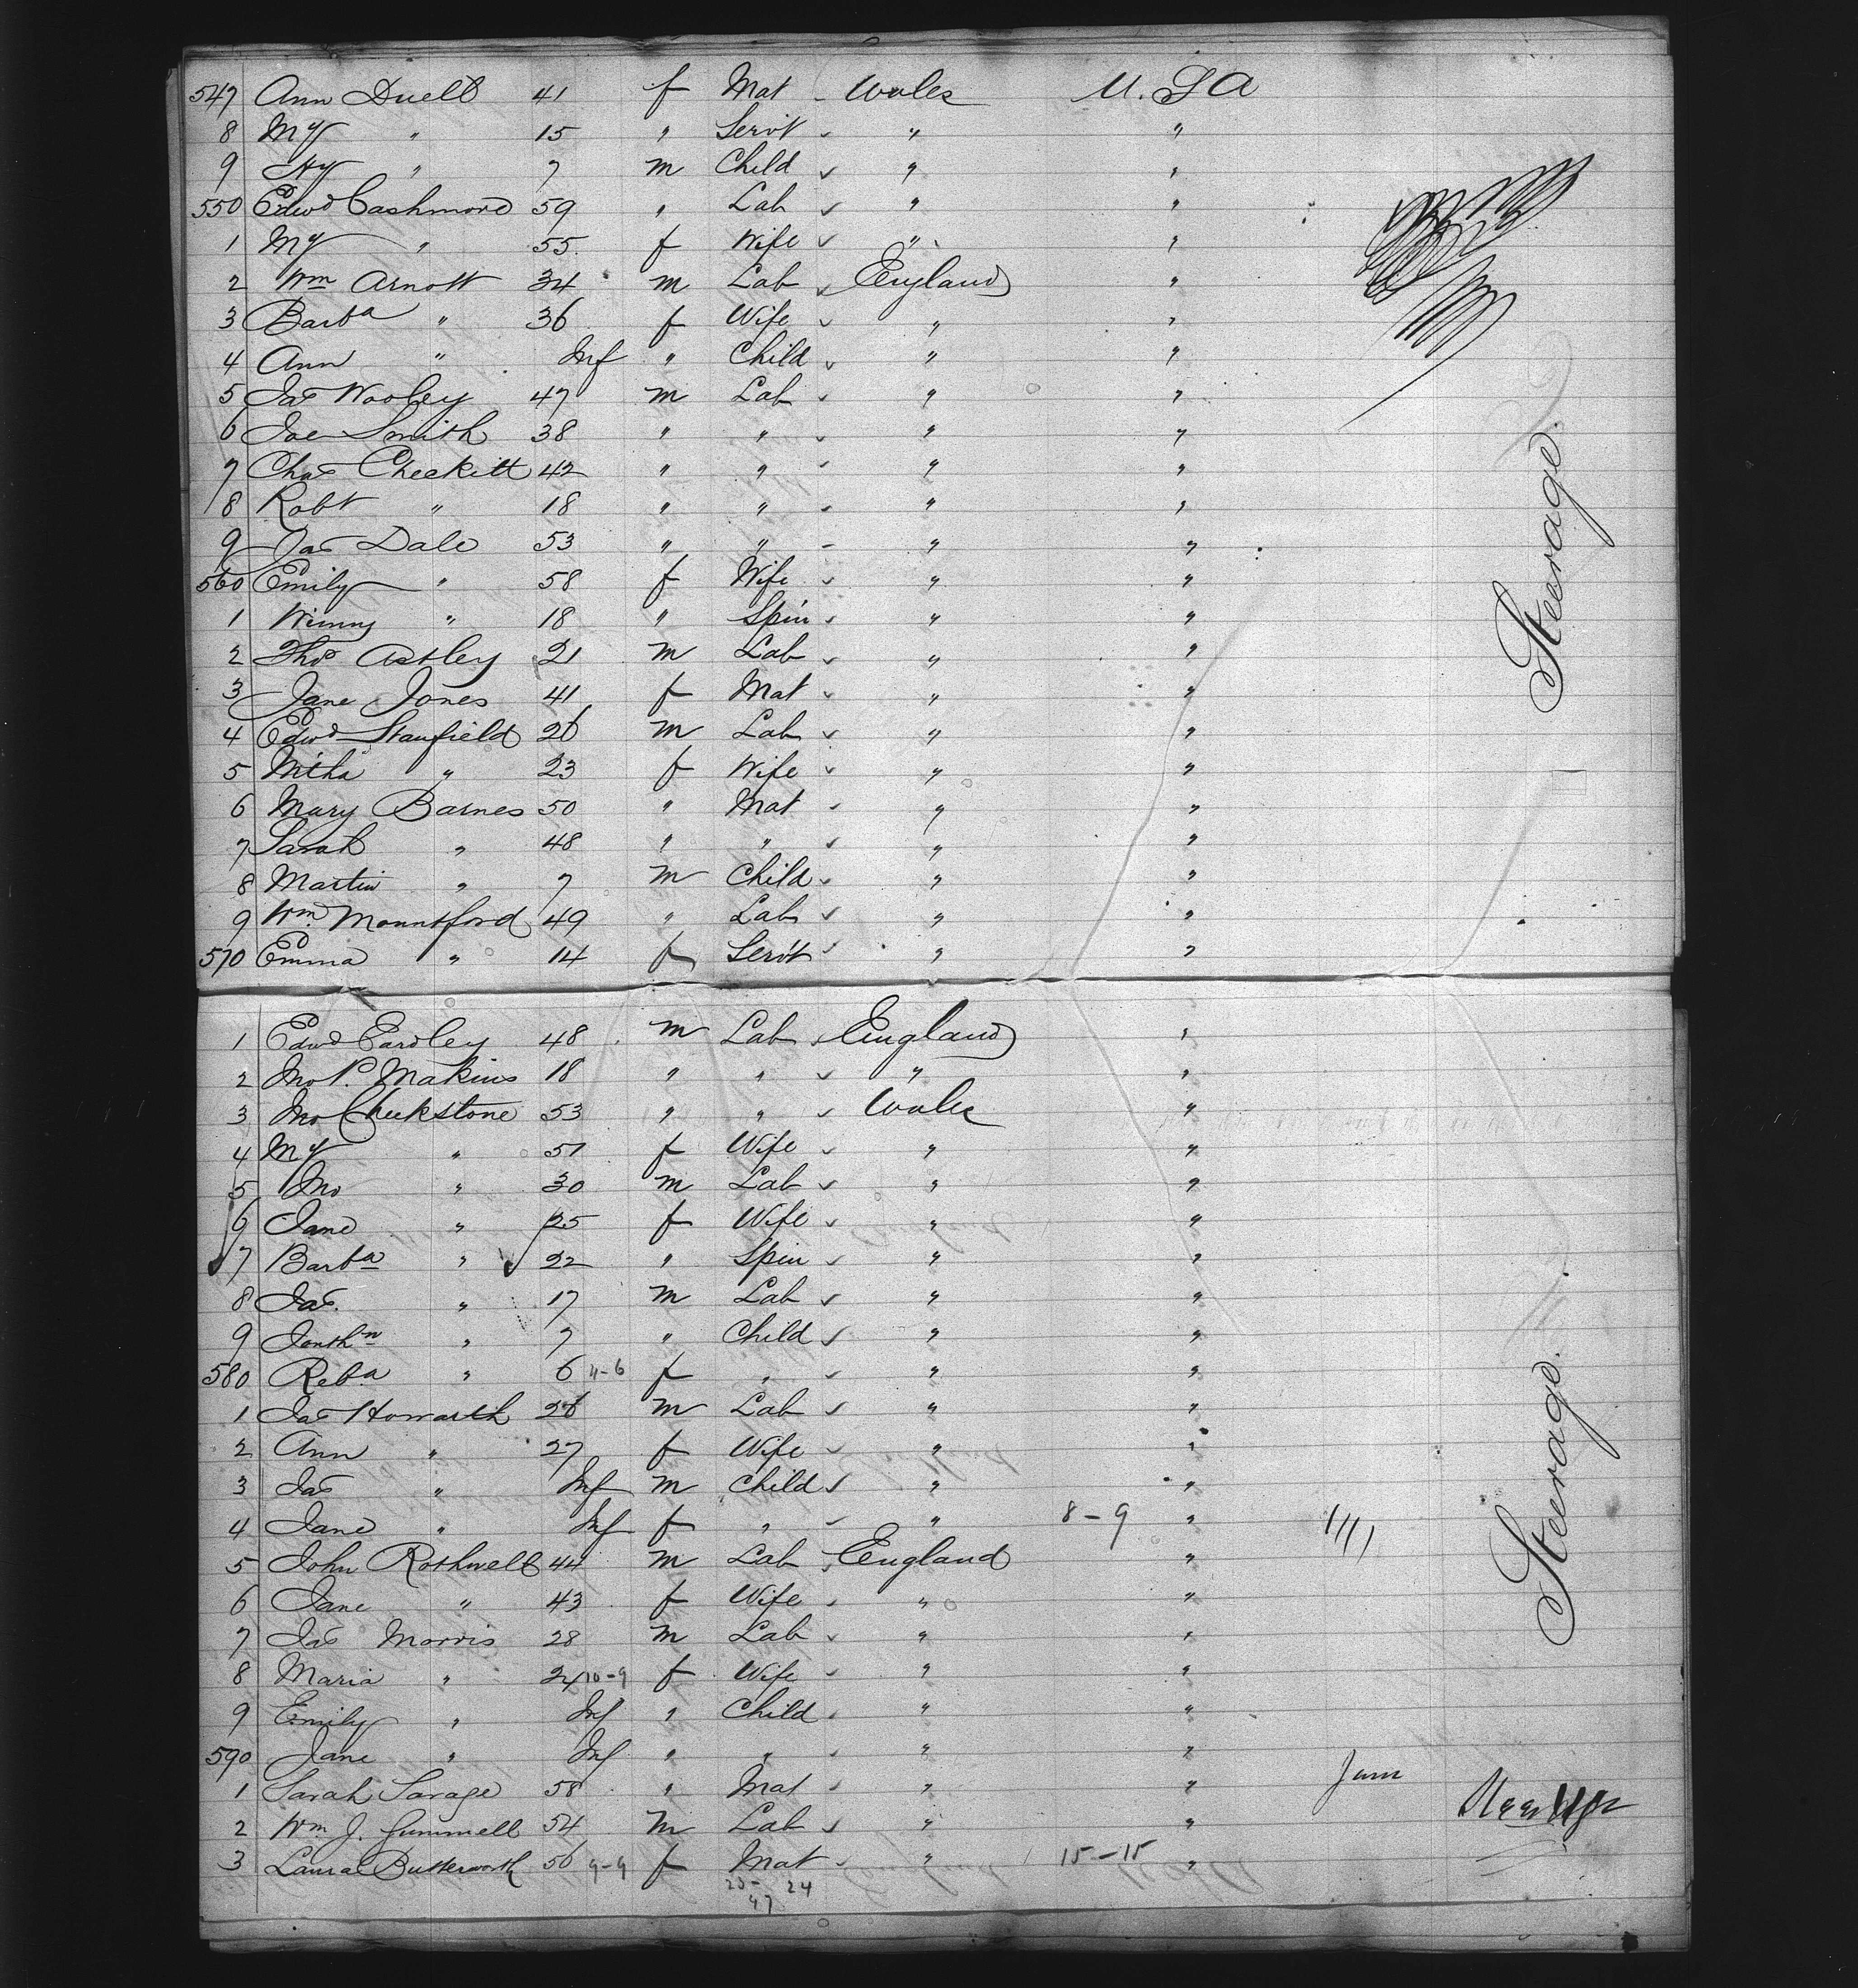 547 Ann Duell 41 f Mat - Wales U. S A
8 My " 15 " Servt " "
9 Hy " 7 m Child " "
550 Edwd Cashmore 59 " Lab " "
1 My " 55 f Wife " "
2 Wm Arnott 34 m Lab England "
3 Barba " 36 f Wife " "
4 Ann " Inf " Child " "
5 Jas Wooley 47 m Lab " "
6 Joe Smith 38 " " " "
7 Chas Checkitt 42 " " " "
8 Robt " 18 " " " "
9 Jas Dale 53 " " - " "
560 Emily " 58 f Wife " "
1 Winny " 18 " Spin " "
2 Thos Astley 21 m Lab " "
3 Jane Jones 41 f Mat " "
4 Edwd Stanfield 26 m Lab " "
5 Mtha " 23 f Wife " "
6 Mary Barnes 50 " Mat " "
7 Sarah " 48 " " " "
8 Martin " 7 m Child " "
9 Wm Mountford 49 " Lab " "
570 Emma " 14 f Servt " "
Steerage.
1 Edwd Eardley 48 m Lab England "
2 Jno P. Makins 18 " " " "
3 Jno Cheekstone 53 " " Wales "
4 My " 51 f Wife " "
5 Jno " 30 m Lab " "
6 Jane " 25 f Wife " "
7 Barba " 22 " Spin " "
8 Jas. " 17 m Lab " "
9 Jonthn " 7 " Child " "
580 Reba " 6 4-6 f " " "
1 Jas Howarth 26 m Lab " "
2 Ann " 27 f Wife " "
3 Jas " Inf m Child " "
4 Jane " Inf f " " 8-9 "
5 John Rothwell 44 m Lab England "
6 Jane " 43 f Wife " "
7 Jas Morris 28 m Lab " "
8 Maria " 24 10-9 f Wife " "
9 Emily " Inf " Child " "
590 Jane " Inf " " " "
1 Sarah Savage 58 " Mat " "
2 Wm J. Gummell 54 m Lab " "
3 Laura Butterworth 56 9-9 f Mat " 15-15 "
23- 24
47
Steerage.